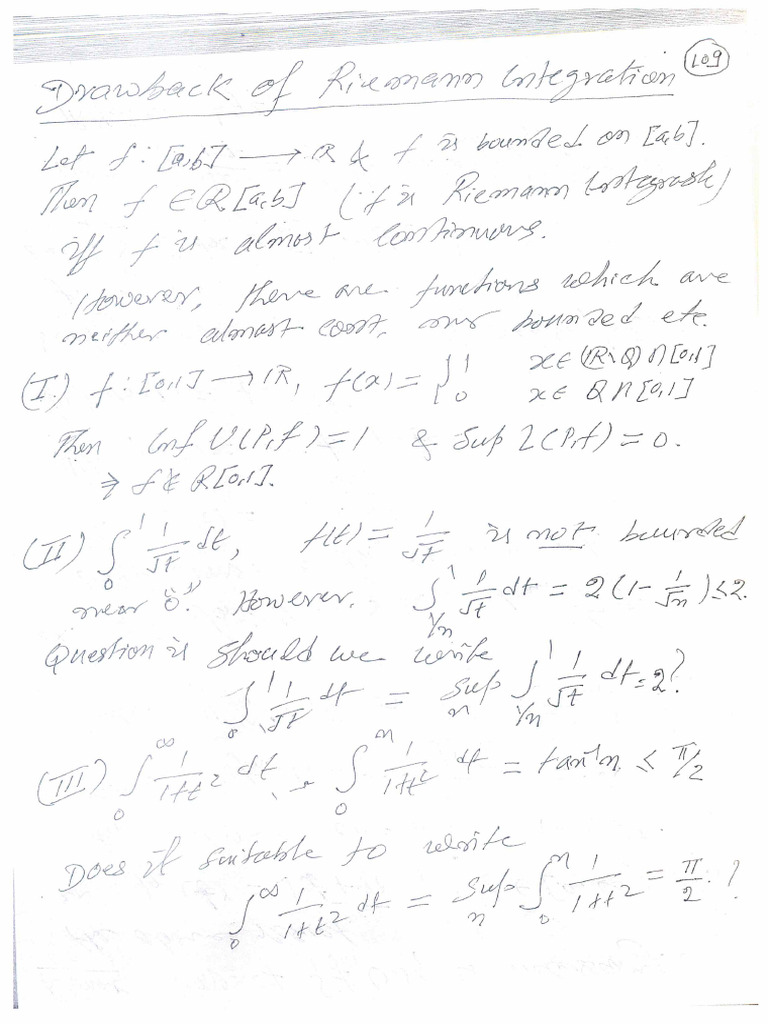 109
Drawback of Riemann Integration
Let f : [a,b] → ℝ & f is bounded on [a,b].
Then f ∈ R[a,b] (f is Riemann Integrable)
iff f is almost continuous.
However, there are functions which are
neither almost cont. nor bounded etc.
(I.) f : [0,1] → ℝ, f(x) = { 1 x ∈ (ℝ\Q) ∩ [0,1]
0 x ∈ Q ∩ [0,1]
Then Inf U(P,f) = 1 & Sup L(P,f) = 0.
⇒ f ∉ R[0,1].
(II) ∫₀¹ 1/√t dt, f(t) = 1/√t is not bounded
near "0". However. ∫_{1/n}^1 1/√t dt = 2(1 - 1/√n) ≤ 2.
Question is should we write
∫₀¹ 1/√t dt = sup_n ∫_{1/n}^1 1/√t dt = 2?
(III) ∫₀^∞ 1/1+t² dt, ∫₀^n 1/1+t² dt = tan⁻¹n ≤ π/2
Does it suitable to write
∫₀^∞ 1/1+t² dt = sup_n ∫₀^n 1/1+t² = π/2 . ?